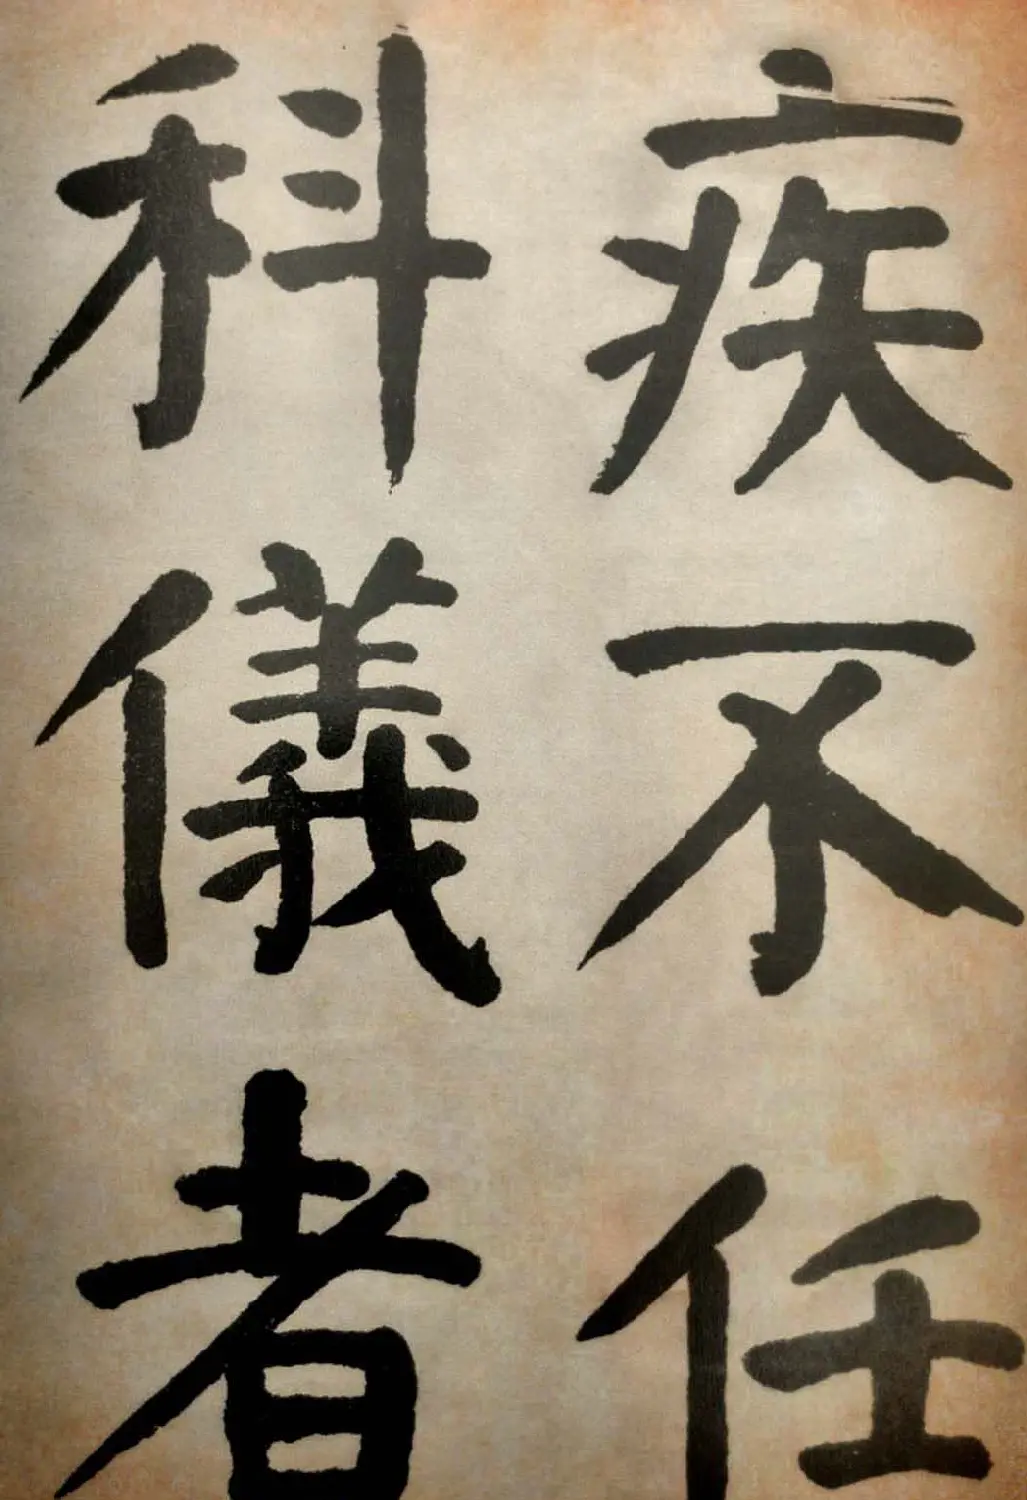 疾不任
科儀者